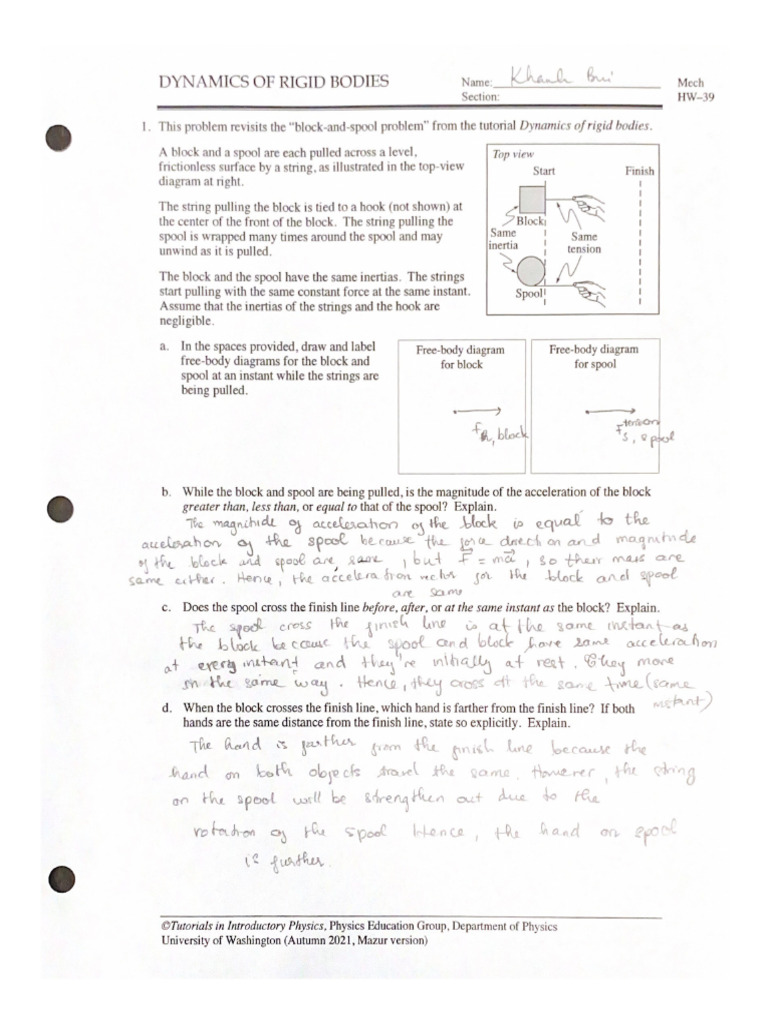 DYNAMICS OF RIGID BODIES
Name: Khanh Bui
Mech
Section:
HW–39
1. This problem revisits the "block-and-spool problem" from the tutorial Dynamics of rigid bodies.
A block and a spool are each pulled across a level,
frictionless surface by a string, as illustrated in the top-view
diagram at right.
The string pulling the block is tied to a hook (not shown) at
the center of the front of the block. The string pulling the
spool is wrapped many times around the spool and may
unwind as it is pulled.
The block and the spool have the same inertias. The strings
start pulling with the same constant force at the same instant.
Assume that the inertias of the strings and the hook are
negligible.
Top view
Start
Finish
Block
Same
inertia
Same
tension
Spool
a. In the spaces provided, draw and label
free-body diagrams for the block and
spool at an instant while the strings are
being pulled.
Free-body diagram
for block
, block
Free-body diagram
for spool
F tension
s, spool
b. While the block and spool are being pulled, is the magnitude of the acceleration of the block
greater than, less than, or equal to that of the spool? Explain.
The magnitude of acceleration of the block is equal to the
acceleration of the spool because the force direction and magnitude
of the block and spool are same, but F = ma, so their mass are
same either. Hence, the acceleration vector for the block and spool
are same
c. Does the spool cross the finish line before, after, or at the same instant as the block? Explain.
The spool cross the finish line is at the same instant as
the block because the spool and block have same acceleration
at every instant and they're initially at rest. They move
in the same way. Hence, they cross at the same time (same
instant)
d. When the block crosses the finish line, which hand is farther from the finish line? If both
hands are the same distance from the finish line, state so explicitly. Explain.
The hand is farther from the finish line because the
hand on both objects travel the same. However, the string
on the spool will be strengthen out due to the
rotation of the spool Hence, the hand on spool
is further.
©Tutorials in Introductory Physics, Physics Education Group, Department of Physics
University of Washington (Autumn 2021, Mazur version)